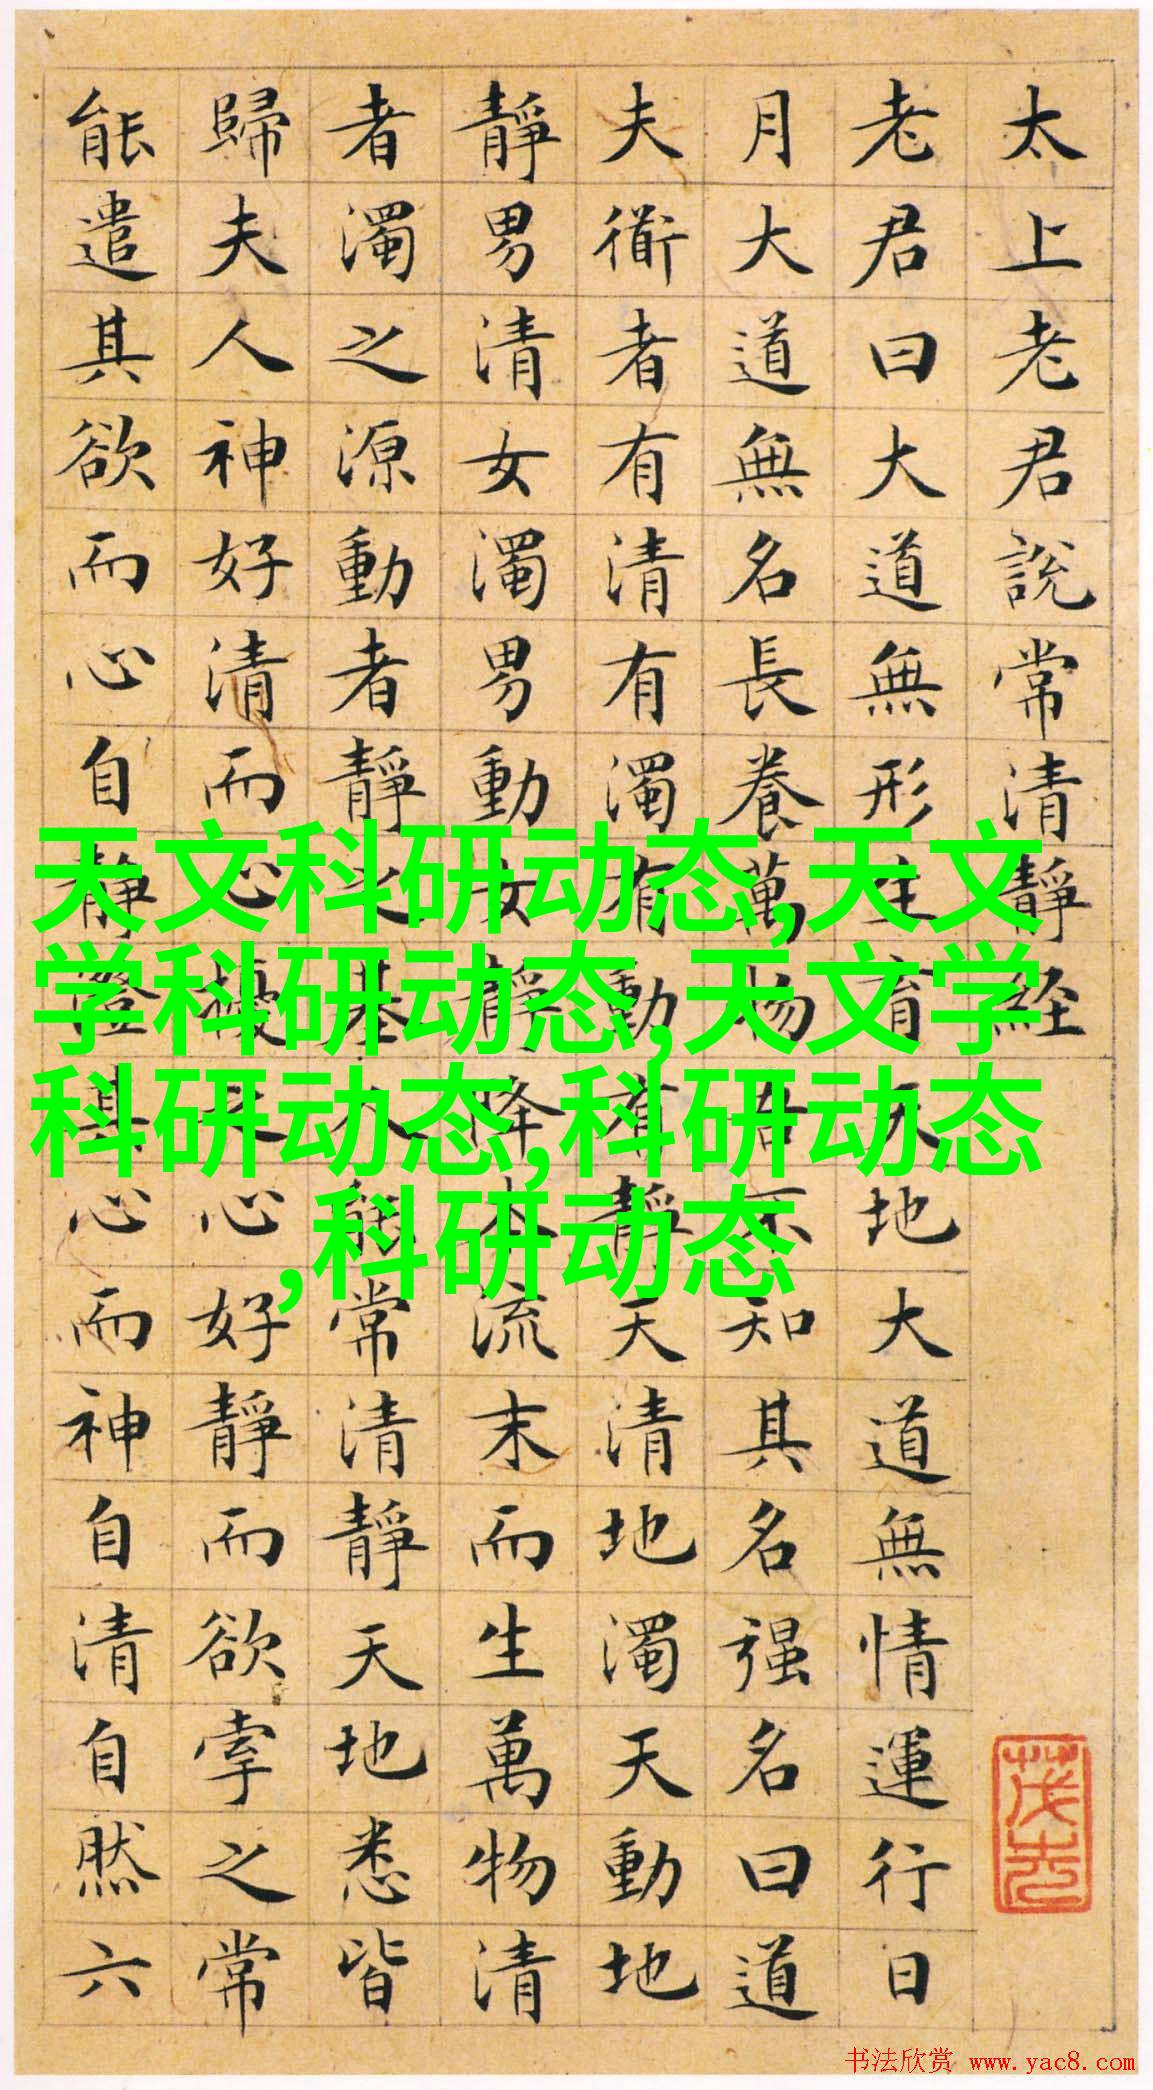 太上老君說常清靜経
老君曰大道無形生育天地大道無情運行日
月大道無名長養萬物吾不知其名强名曰道
夫衜者有清有濁有動有靜天清地濁天動地
靜男清女濁男動女靜降本流末而生萬物清
者濁之源動者靜之基人能常清靜天地悉皆
歸夫人神好清而心擾之心好靜而欲牽之常
能遣其欲而心自靜澄其心而神自清自然六
天文科研动态,天文
学科研动态,天文学
科研动态,科研动态
,科研动态
书法欣赏 www.yac8.com